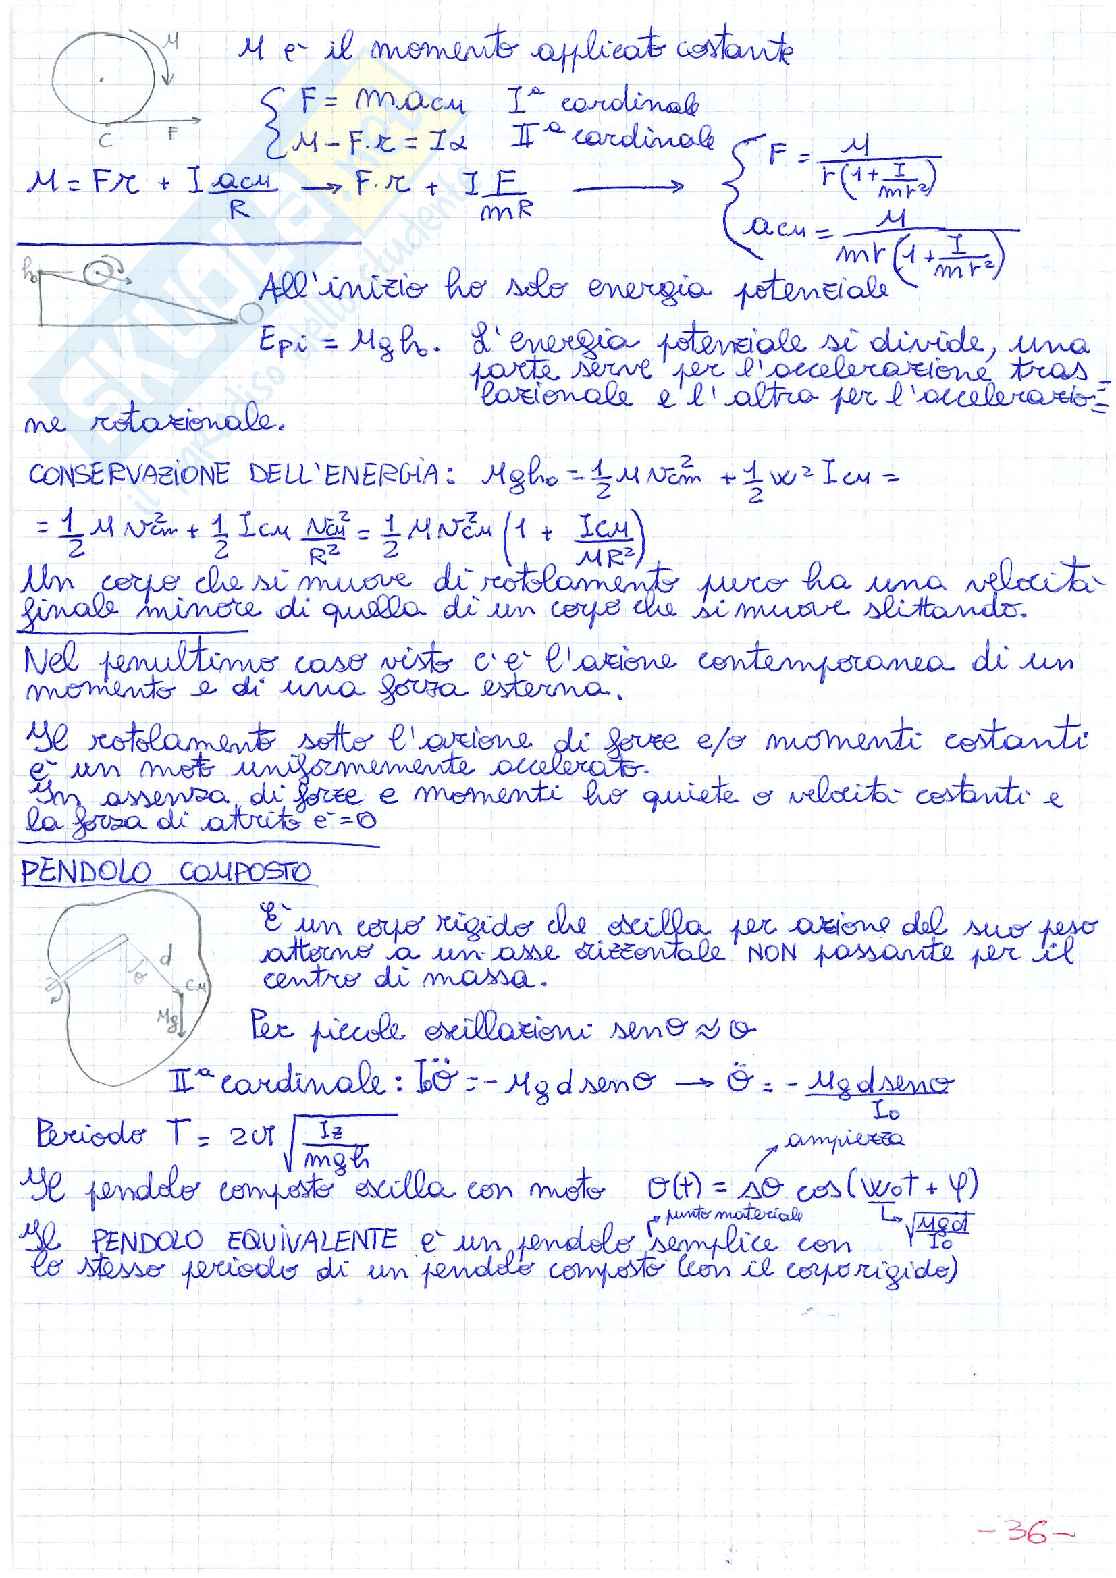 M
C F
M è il momento applicato costante
F = m acm Iª cardinale
M - F·r = Iα IIª cardinale
M = Fr + I acm/R → F·r + I F/mR → F = M/r(1 + I/mr²)
acm = M/mr(1 + I/mr²)
h₀
All'inizio ho solo energia potenziale
Epi = Mgh₀. L'energia potenziale si divide, una
parte serve per l'accelerazione tras
lazionale e l'altra per l'accelerazio
ne rotazionale.
CONSERVAZIONE DELL'ENERGIA: Mgh₀ = 1/2 M v²cm + 1/2 w² Icm =
= 1/2 M v²cm + 1/2 Icm v²cm/R² = 1/2 M v²cm (1 + Icm/MR²)
Un corpo che si muove di rotolamento puro ha una velocità
finale minore di quella di un corpo che si muove slittando.
Nel penultimo caso visto c'è l'azione contemporanea di un
momento e di una forza esterna.
Il rotolamento sotto l'azione di forze e/o momenti costanti
è un moto uniformemente accelerato.
In assenza di forze e momenti ho quiete o velocità costanti e
la forza di attrito è = 0
PENDOLO COMPOSTO
d
θ
CM
Mg
È un corpo rigido che oscilla per azione del suo peso
attorno a un asse orizzontale NON passante per il
centro di massa.
Per piccole oscillazioni senθ ≈ θ
IIª cardinale: I₀θ̈ = -Mgd senθ → θ̈ = - Mgd senθ/I₀
Periodo T = 2π √(Iz/mgh)
ampiezza
Il pendolo composto oscilla con moto θ(t) = sθ cos(w₀t + φ)
punto materiale √(Mgd/I₀)
Il PENDOLO EQUIVALENTE è un pendolo semplice con
lo stesso periodo di un pendolo composto (con il corpo rigido)
-36-